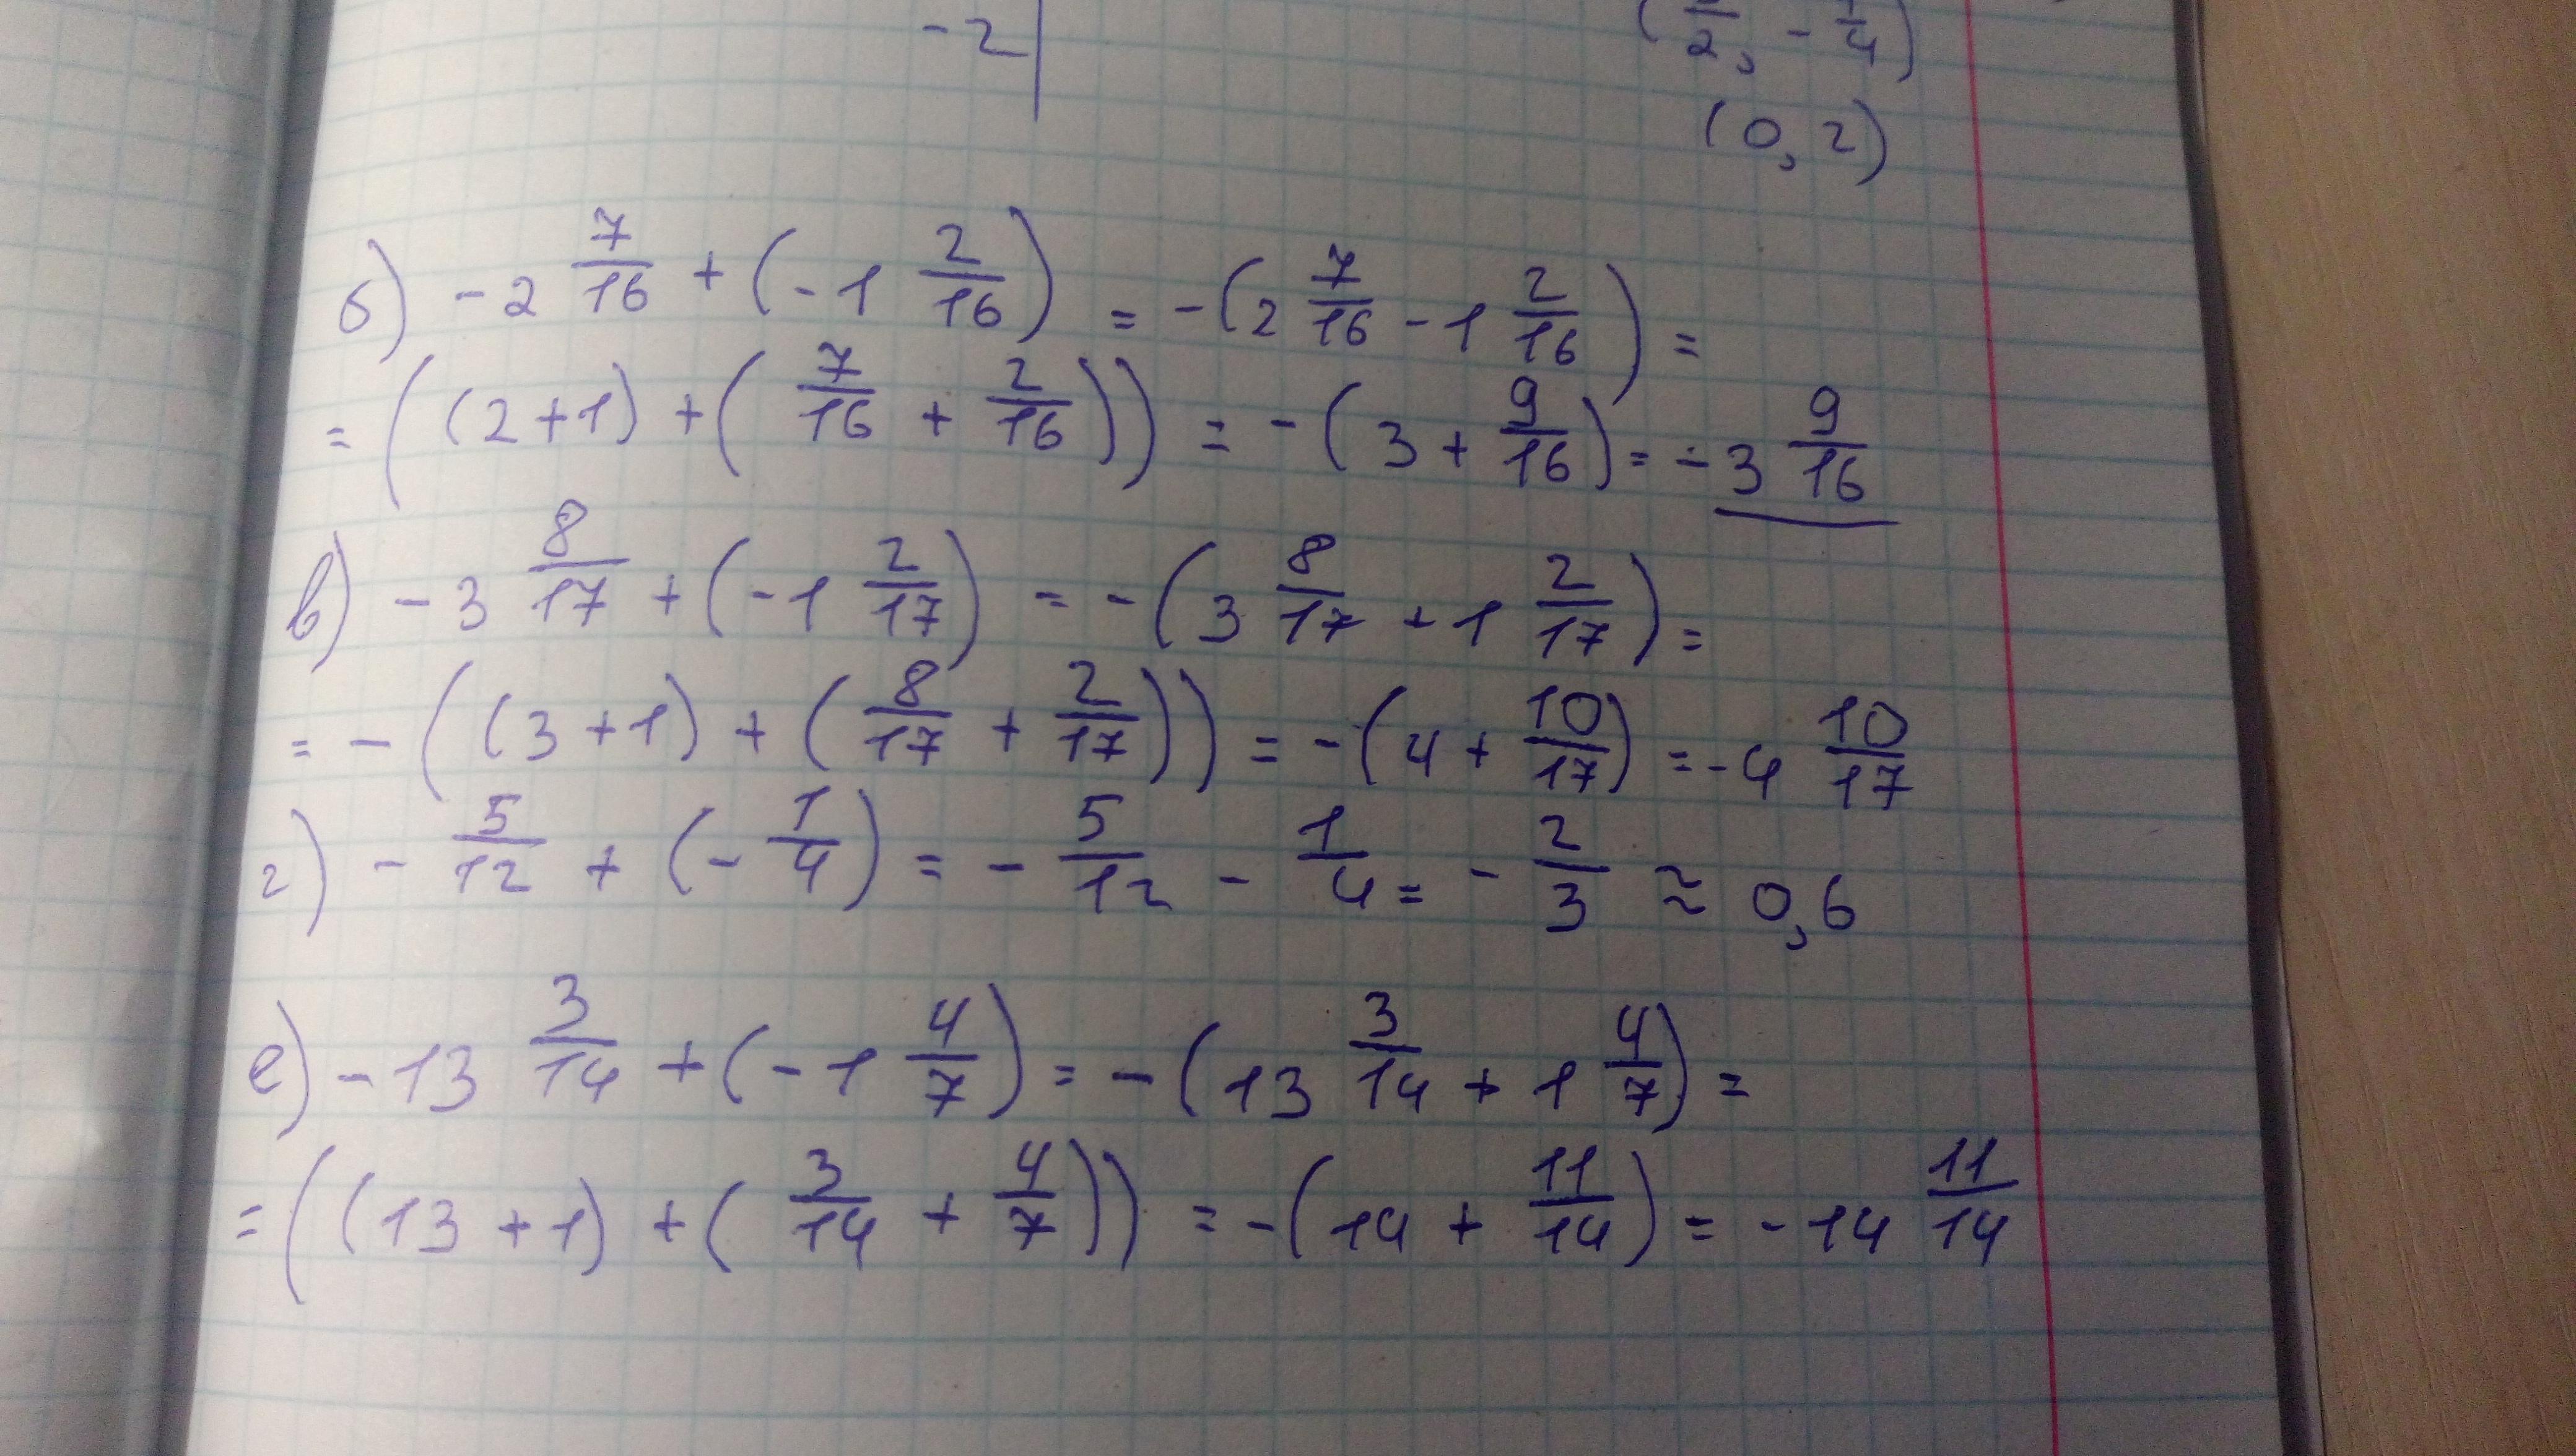 -2
(0, 2)
б) -2 7/16 + (-1 2/16) = -(2 7/16 - 1 2/16) =
= ((2+1) + (7/16 + 2/16)) = -(3 + 9/16) = -3 9/16
в) -3 8/17 + (-1 2/17) = -(3 8/17 + 1 2/17) =
= -((3+1) + (8/17 + 2/17)) = -(4 + 10/17) = -4 10/17
г) - 5/12 + (- 1/4) = - 5/12 - 1/4 = - 2/3 ≈ 0,6
е) -13 3/14 + (-1 4/7) = -(13 3/14 + 1 4/7) =
= ((13+1) + (3/14 + 4/7)) = -(14 + 11/14) = -14 11/14